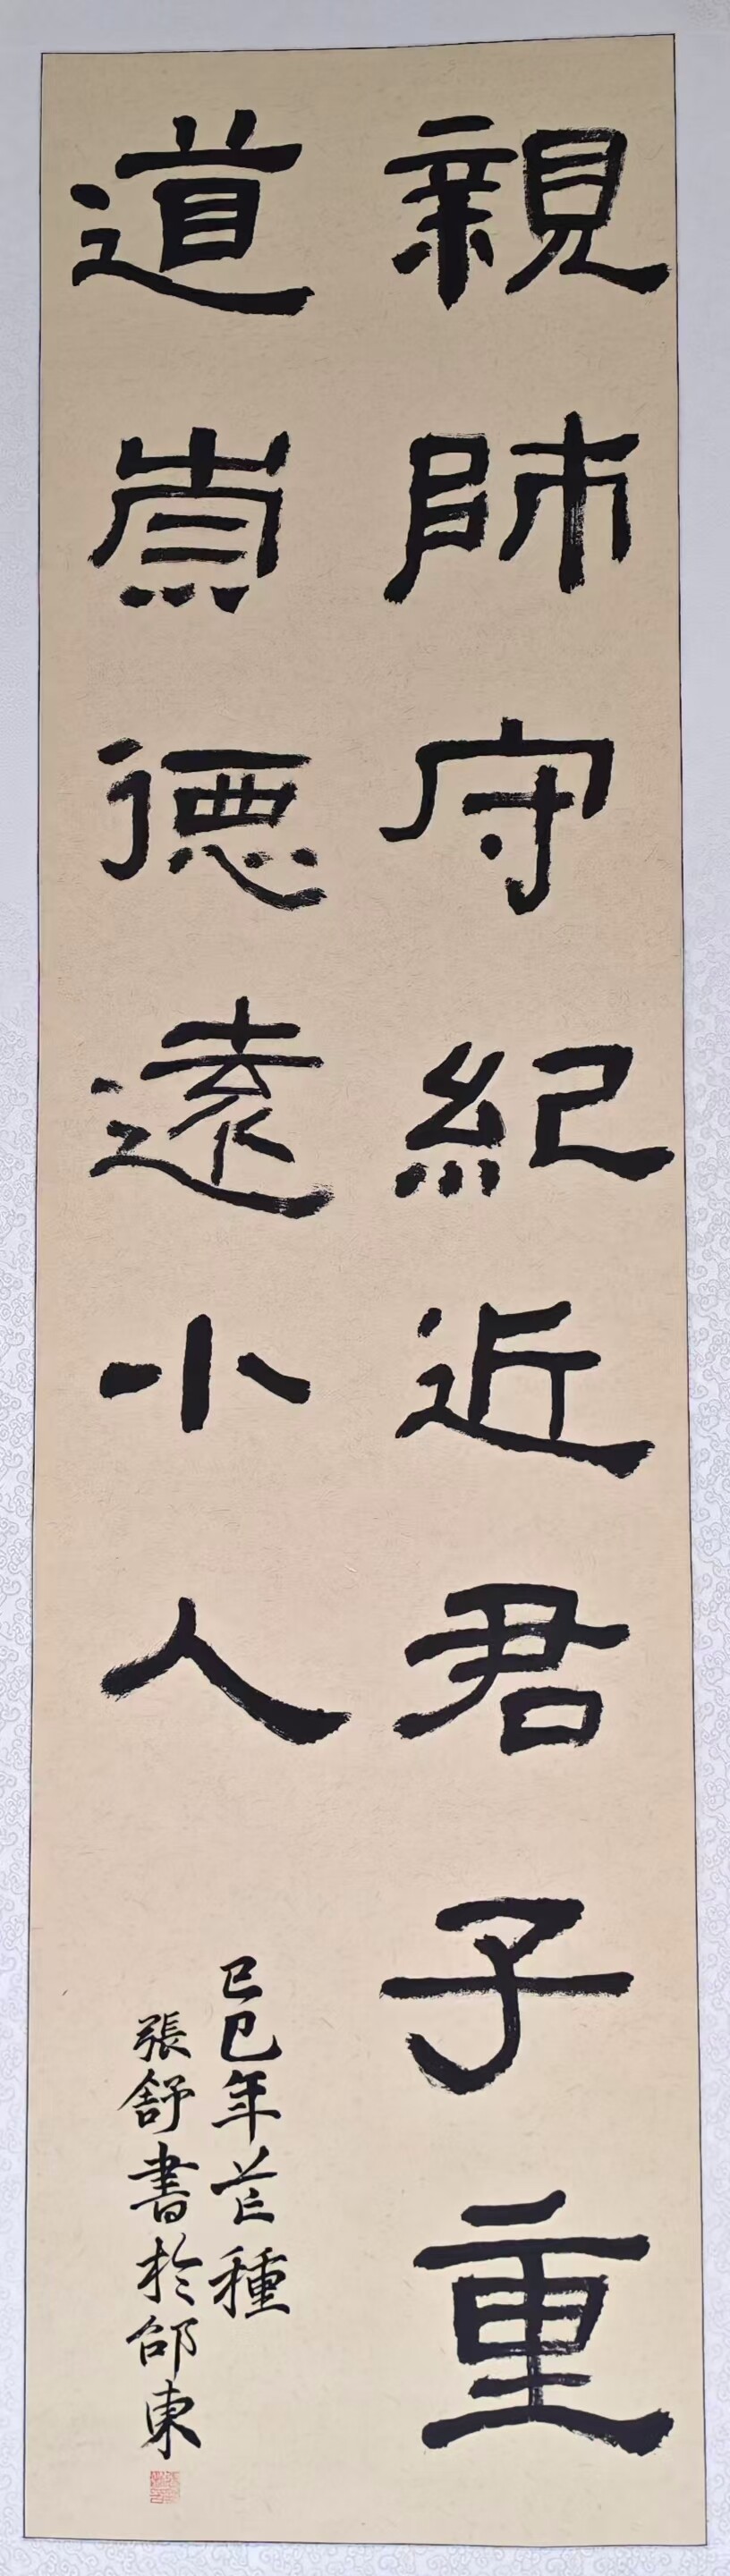 親師守紀近君子重
道崇德遠小人
己巳年芒種
張舒書於邵東